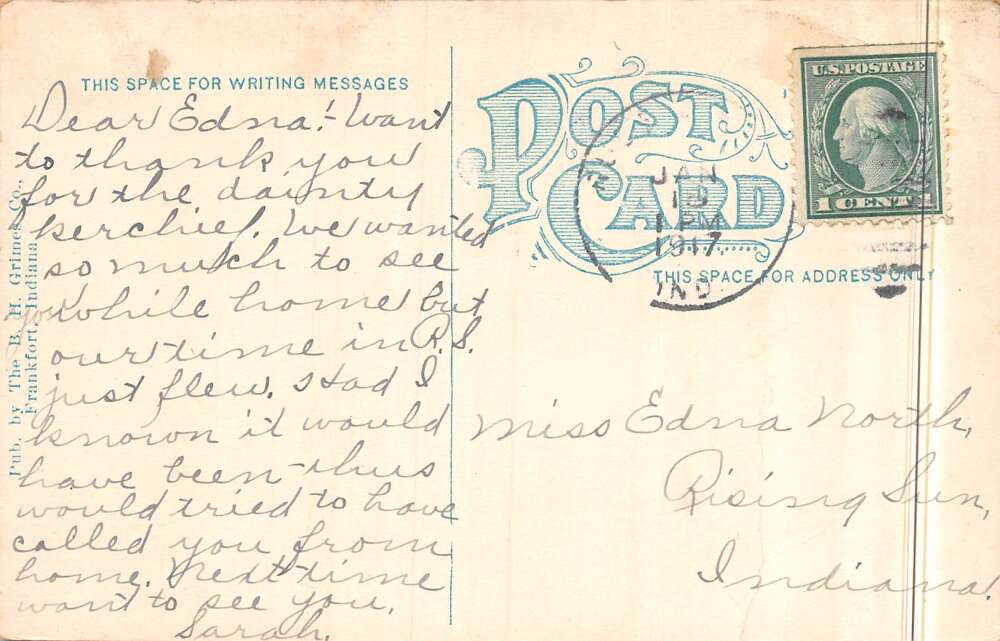 THIS SPACE FOR WRITING MESSAGES
Dear Edna:- Want
to thank you
for the dainty
kerchief. We wanted
so much to see
you while home but
our time in R.S.
just flew. Had I
known it would
have been thus
would tried to have
called you from
home. Next time
want to see you.
Sarah.
Pub. by The B. H. Grimes Co.,
Frankfort, Indiana.
POST
CARD
JAN
18
1 PM
1917
IND
U.S. POSTAGE
1 CENT 1
THIS SPACE FOR ADDRESS ONLY
Miss Edna North,
Rising Sun,
Indiana.